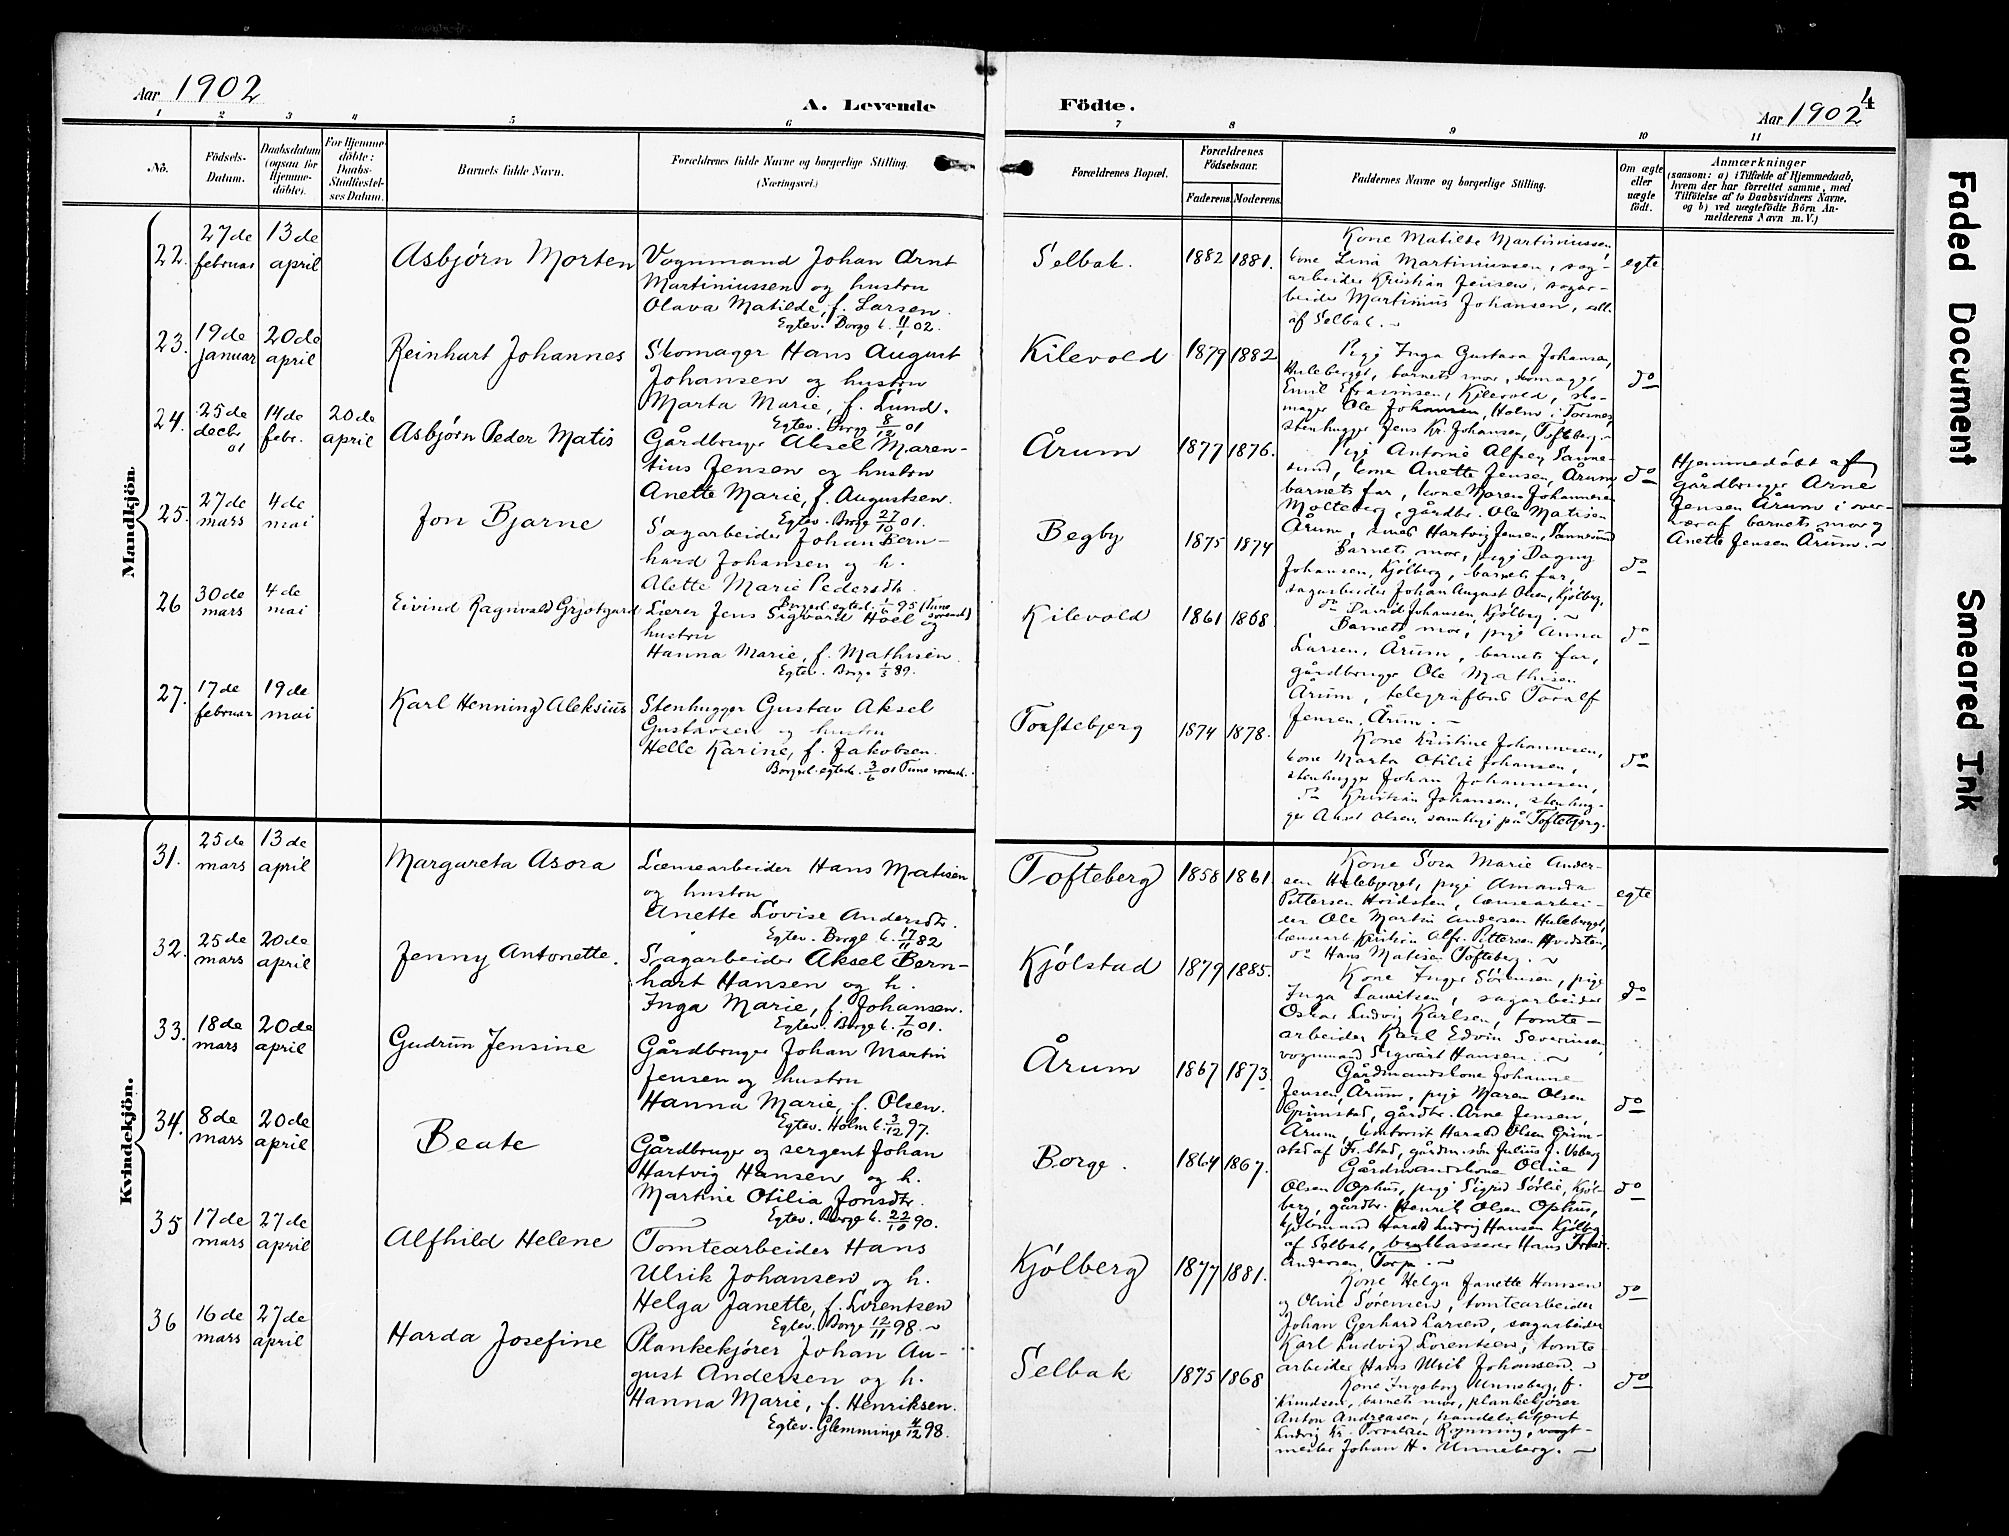 Aar 1902
A. Levende
Födte.
Aar 1902
4
1 2 3 4 5 6 7 8 9 10 11
No.
Födsels-Datum.
Daabsdatum (ogsaa for Hjemme-döbte).
For Hjemme-döbte: Daabs-Stadfæstel-ses Datum.
Barnets fulde Navn.
Forældrenes fulde Navne og borgerlige Stilling. (Næringsvei.)
Forældrenes Bopæl.
Forældrenes Födselsaar.
Faderens. Moderens.
Faddernes Navne og borgerlige Stilling.
Om ægte eller uægte födt.
Anmærkninger
(saasom: a) i Tilfælde af Hjemmedaab,
hvem der har forrettet samme, med
Tilföielse af to Daabsvidners Navne,
og b) ved uægtefödte Börn An-
melderens Navn m. V.)
Mandkjön.
22. 27de februar
13de april
Asbjørn Morten
Vognmand Johan Arnt
Martiniussen og hustru
Olava Matilde, f. Larsen.
Egtev. Borge k. 11/1 02.
Selbak.
1882 1881.
Kone Matilde Martiniussen,
kone Lina Martiniussen, sag-
arbeider Kristian Jensen, sagar-
beider Martinius Johansen, alle
af Selbak.
egte
23. 19de januar
20de april
Reinhart Johannes
Skomager Hans August
Johansen og hustru
Marta Marie, f. Lund.
Egtev. Borge 8/12 01
Kilevold
1879 1882
Pige Inga Gustava Johansen,
Huleberget, barnets mor, skomager
Emil Efraimsen, Kilevold, sko-
mager Ole Johansen, Holm i Torsnes,
stenhugger Jens Kr. Johansen, Tofteberg.
do
24. 25de decbr 01
14de febr.
20de april
Asbjørn Peder Matis
Gårdbruger Aksel Maren-
tius Jensen og hustru
Anette Marie, f. Augustsen.
Egtev. Borge 27/10 01.
Årum
1877 1876.
Pige Antonie Alfsen Sanne-
sund, kone Anette Jensen, Årum
barnets far, kone Maren Johannesen
Molteberg, gårdbr. Ole Matisen
Årum, Hartvig Jensen, Sannesund
do
Hjemmedöbt af
gårdbruger Arne
Jensen Årum i over-
vær af barnets mor og
Anette Jensen Årum.
25. 27de mars
4de mai
Jon Bjarne
Sagarbeider Johan Bern-
hard Johansen og h.
Alette Marie Pedersdtr.
Begby
1875 1874
Barnets mor, pige Dagny
Johansen, Kjölberg, barnets far,
sagarbeider Johan August Olsen, Kjölberg,
do David Johansen, Kjölberg.
do
26 30de mars
4de mai
Eivind Ragnvald Grjotgard
Lærer Jens Sigvard Hoel og
hustru
Hanna Marie, f. Mathisen.
Egtev. Borge 1/5 89.
Kilevold
1861 1868.
Barnets mor, pige Anna
Larsen, Årum, barnets far,
gårdbruger Ole Mathisen
Årum, telegrafbud Toralf
Jensen, Årum.
do
27. 17de februar
19de mai
Karl Henning Aleksius
Stenhugger Gustav Aksel
Gustavsen og hustru
Helle Karine, f. Jakobsen.
Borgerl. egtev. 3/6 01 Tune sorensk.
Toftebjerg
1874 1878.
Kone Kristine Johannesen,
kone Marta Otilie Johansen,
stenhugger Johan Johannesen,
do Kristian Johansen, stenhug-
ger Aksel Olsen, samtlige på Toftebjerg.
do
Kvindekjön.
31. 25de mars
13de april
Margareta Asora
Lænsearbeider Hans Matisen
og hustru
Anette Lovise Andersdtr.
Egtev. Borge k. 17/11 82
Tofteberg
1858 1861
Kone Sora Marie Ander-
sen Huleberget, pige Amanda
Pettersen Hvidsten, lænsearbei-
der Ole Martin Andersen Huleberget,
lænsearb. Kristian Alfr. Pettersen Hvidsten,
do Hans Matisen Tofteberg.
egte
32. 25de mars
20de april
Jenny Antonette.
Sagarbeider Aksel Bern-
hart Hansen og h.
Inga Marie, f. Johansen.
Egtev. Borge k. 7/10 01.
Kjölstad
1879 1885.
Kone Inger Sörensen, pige
Inga Lauritsen, sagarbeider
Oskar Ludvig Karlsen, tomte-
arbeider Karl Edvin Severinsen,
vognmand Sigvart Hansen.
do
33. 18de mars
20de april
Gudrun Jensine
Gårdbruger Johan Martin
Jensen og hustru
Hanna Marie, f. Olsen.
Egtev. Holm k. 3/12 97.
Årum
1867 1873.
Gårdmandskone Johanne
Jensen, Årum, pige Maren Olsen
Grimstad, gårdbr. Arne Jensen,
Årum, kontorist Harald Olsen Grim-
stad af Fr. Stad, gårdm.søn Julius J. Veberg
do
34. 8de mars
20de april
Beate
Gårdbruger og sergent Johan
Hartvig Hansen og h.
Martine Otilia Jonsdtr.
Egtev. Borge k. 22/10 90.
Borge.
1864 1867.
Gårdmandskone Oline
Olsen Ophus, pige Sigrid Sörlie, Kjöl-
berg, gårdbr. Henrik Olsen Ophus,
Harald Ludvig Hansen Kjölberg
af Selbak, Hans
Andersen, Torp.
do
35 17de mars
27de april
Alfhild Helene
Tomtearbeider Hans
Ulrik Johansen og h.
Helga Janette, f. Lorentsen
Egtev. Borge 12/11 98.
Kjölberg
1877 1881.
Kone Helga Janette Hansen
og Oline Sörensen, tomtearbeider
Johan Gerhard Larsen, sagarbeider
Karl Ludvig Lorentsen, tomte-
arbeider Hans Ulrik Johansen.
do
36 16de mars
27de april
Harda Josefine
Plankekjører Johan Au-
gust Andersen og h.
Hanna Marie, f. Henriksen.
Egtev. Glemminge 4/12 98.
Selbak
1875 1868
Kone Ingeborg Unneberg, f.
Knudsen, barnets mor, plankekjører
Anton Andreasen, handelsbetjent
Ludvig Kr. Torvaldsen Rönning, vagt-
mester Johan H. Unneberg.
do
Faded Document
Smeared Ink